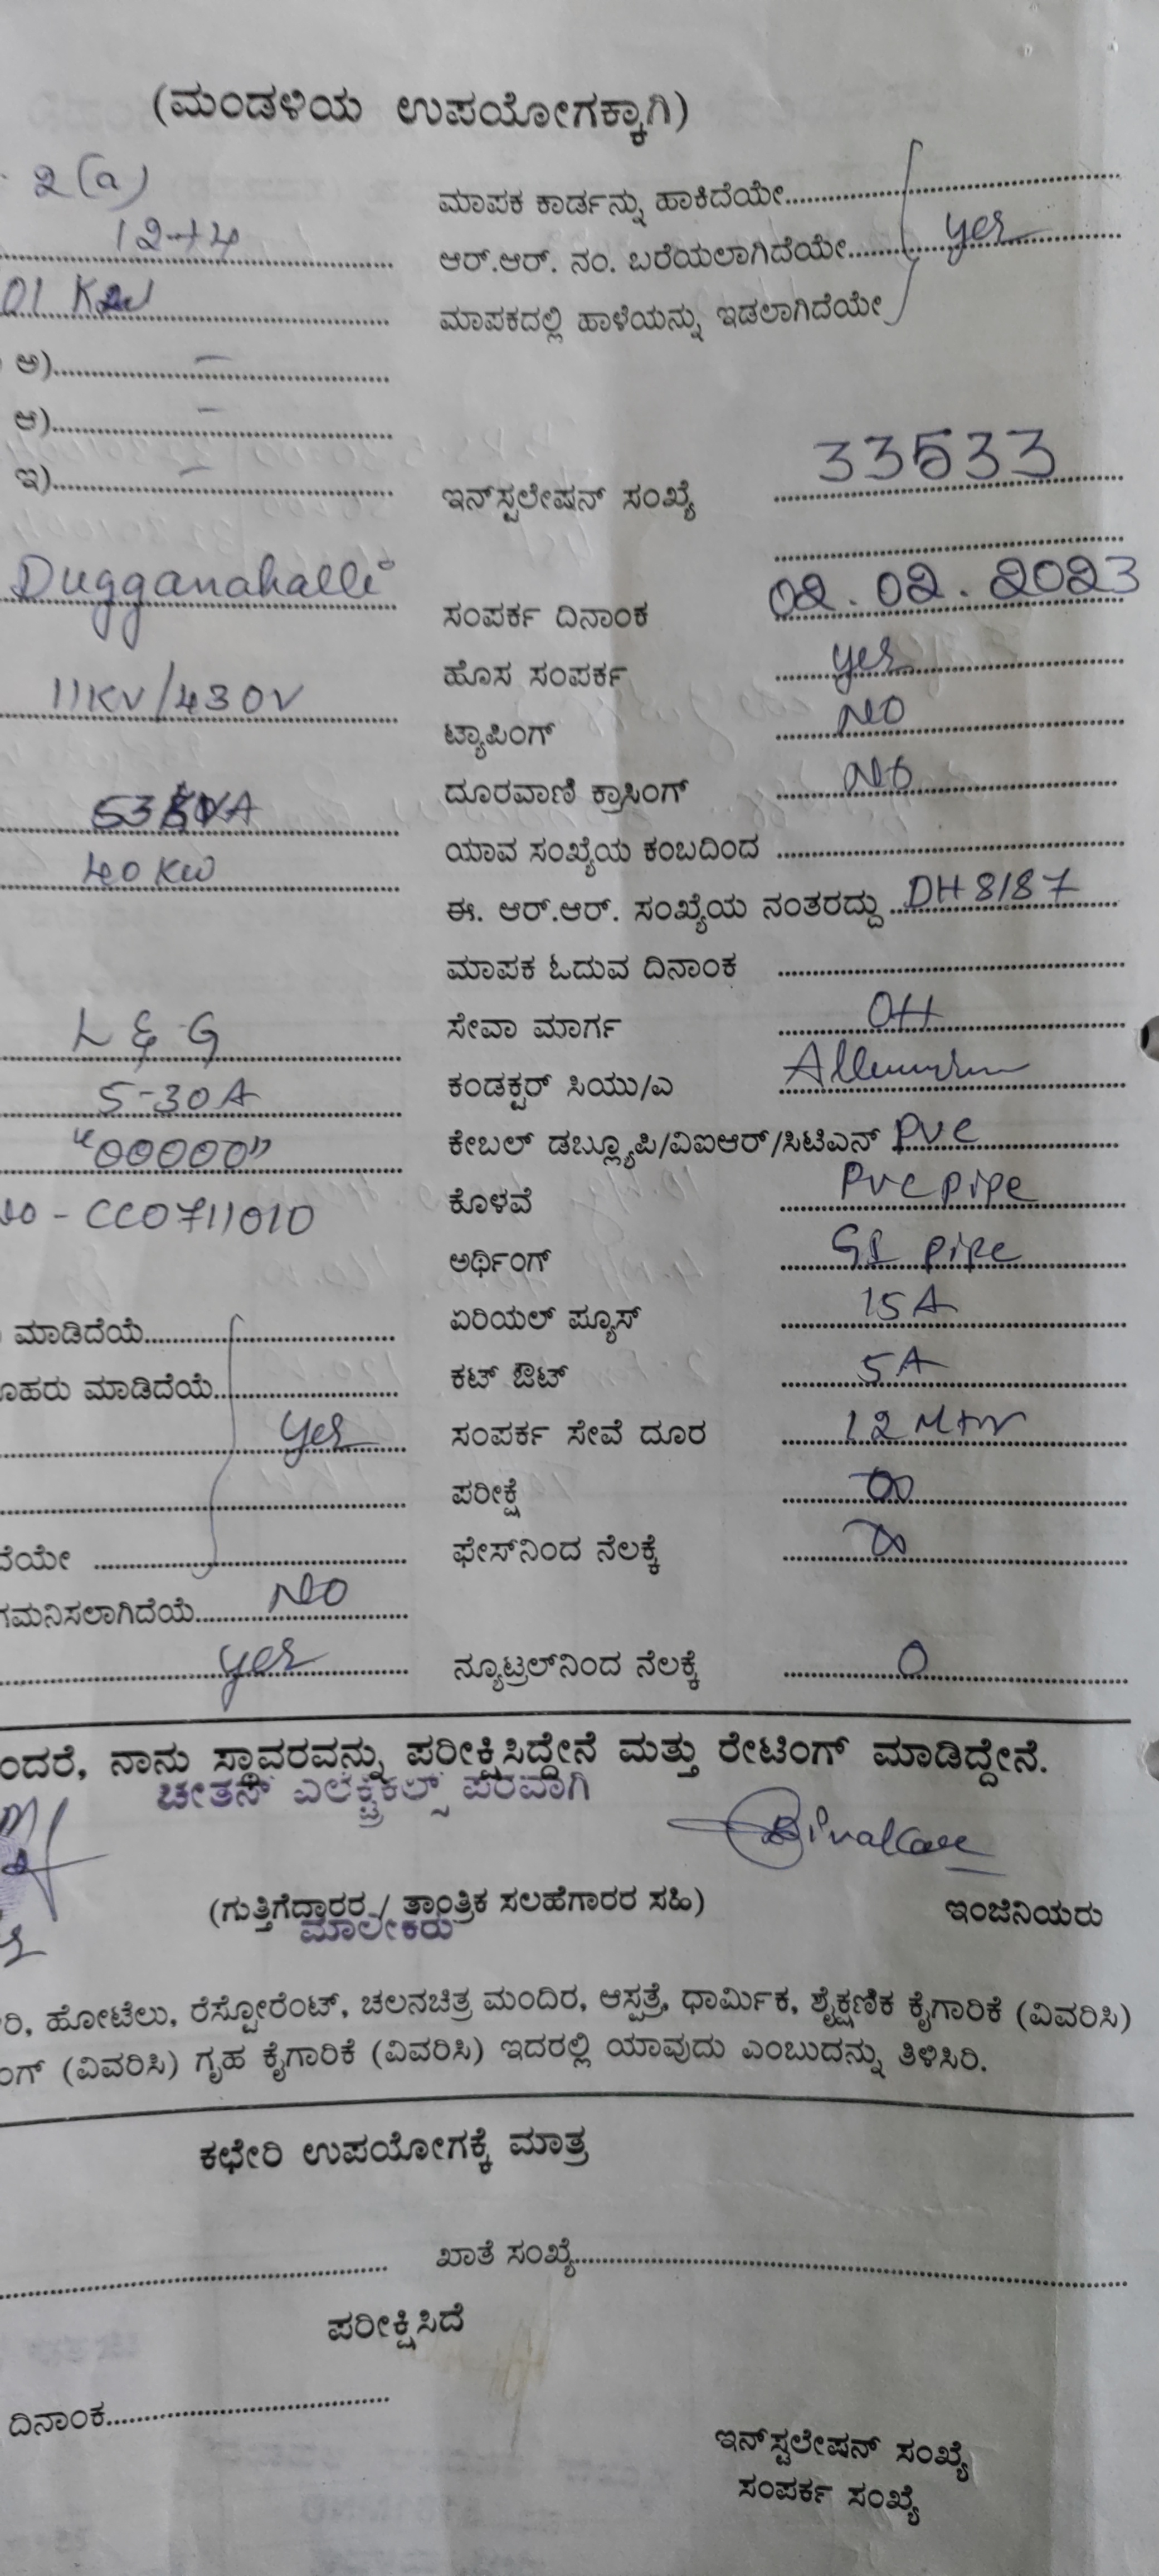 (ಮಂಡಳಿಯ ಉಪಯೋಗಕ್ಕಾಗಿ)
2(a)
ಮಾಪಕ ಕಾರ್ಡನ್ನು ಹಾಕಿದೆಯೇ
12+4
ಆರ್.ಆರ್. ನಂ. ಬರೆಯಲಾಗಿದೆಯೇ yes
01 KW
ಮಾಪಕದಲ್ಲಿ ಹಾಳೆಯನ್ನು ಇಡಲಾಗಿದೆಯೇ
ಅ) -
ಆ) -
ಇ) -
ಇನ್‌ಸ್ಟಲೇಷನ್ ಸಂಖ್ಯೆ 33533
Dugganahalli
ಸಂಪರ್ಕ ದಿನಾಂಕ 02.02.2023
ಹೊಸ ಸಂಪರ್ಕ yes
11KV/430V
ಟ್ಯಾಪಿಂಗ್ NO
ದೂರವಾಣಿ ಕ್ರಾಸಿಂಗ್ NO
63 KVA
ಯಾವ ಸಂಖ್ಯೆಯ ಕಂಬದಿಂದ
40 KW
ಈ. ಆರ್.ಆರ್. ಸಂಖ್ಯೆಯ ನಂತರದ್ದು DH 8187
ಮಾಪಕ ಓದುವ ದಿನಾಂಕ
L & G
ಸೇವಾ ಮಾರ್ಗ OH
5-30A
ಕಂಡಕ್ಟರ್ ಸಿಯು/ಎ
"00000"
ಕೇಬಲ್ ಡಬ್ಲ್ಯೂಪಿ/ವಿಐಆರ್/ಸಿಟಿಎನ್ Pvc
NO - CC0711010
ಕೊಳವೆ Pvc pipe
ಅರ್ಥಿಂಗ್ GI pipe
ಮಾಡಿದೆಯೆ
ಏರಿಯಲ್ ಪ್ಯೂಸ್ 15 A
ಮಾಡಿದೆಯೆ
ಕಟ್ ಔಟ್ 5A
yes
ಸಂಪರ್ಕ ಸೇವೆ ದೂರ 12 Mtr
ಪರೀಕ್ಷೆ ∞
ಫೇಸ್‌ನಿಂದ ನೆಲಕ್ಕೆ ∞
ಗಮನಿಸಲಾಗಿದೆಯೆ NO
yes
ನ್ಯೂಟ್ರಲ್‌ನಿಂದ ನೆಲಕ್ಕೆ 0
ಂದರೆ, ನಾನು ಸ್ಥಾವರವನ್ನು ಪರೀಕ್ಷಿಸಿದ್ದೇನೆ ಮತ್ತು ರೇಟಿಂಗ್ ಮಾಡಿದ್ದೇನೆ.
ಚೇತನ್ ಎಲೆಕ್ಟ್ರಿಕಲ್ಸ್ ಪರವಾಗಿ
(ಗುತ್ತಿಗೆದಾರರ / ತಾಂತ್ರಿಕ ಸಲಹೆಗಾರರ ಸಹಿ) ಇಂಜಿನಿಯರು
ಮಾಲೀಕರು
ರಿ, ಹೋಟೆಲು, ರೆಸ್ಟೋರೆಂಟ್, ಚಲನಚಿತ್ರ ಮಂದಿರ, ಆಸ್ಪತ್ರೆ, ಧಾರ್ಮಿಕ, ಶೈಕ್ಷಣಿಕ ಕೈಗಾರಿಕೆ (ವಿವರಿಸಿ)
ಂಗ್ (ವಿವರಿಸಿ) ಗೃಹ ಕೈಗಾರಿಕೆ (ವಿವರಿಸಿ) ಇದರಲ್ಲಿ ಯಾವುದು ಎಂಬುದನ್ನು ತಿಳಿಸಿರಿ.
ಕಛೇರಿ ಉಪಯೋಗಕ್ಕೆ ಮಾತ್ರ
ಖಾತೆ ಸಂಖ್ಯೆ
ಪರೀಕ್ಷಿಸಿದೆ
ದಿನಾಂಕ
ಇನ್‌ಸ್ಟಲೇಷನ್ ಸಂಖ್ಯೆ
ಸಂಪರ್ಕ ಸಂಖ್ಯೆ